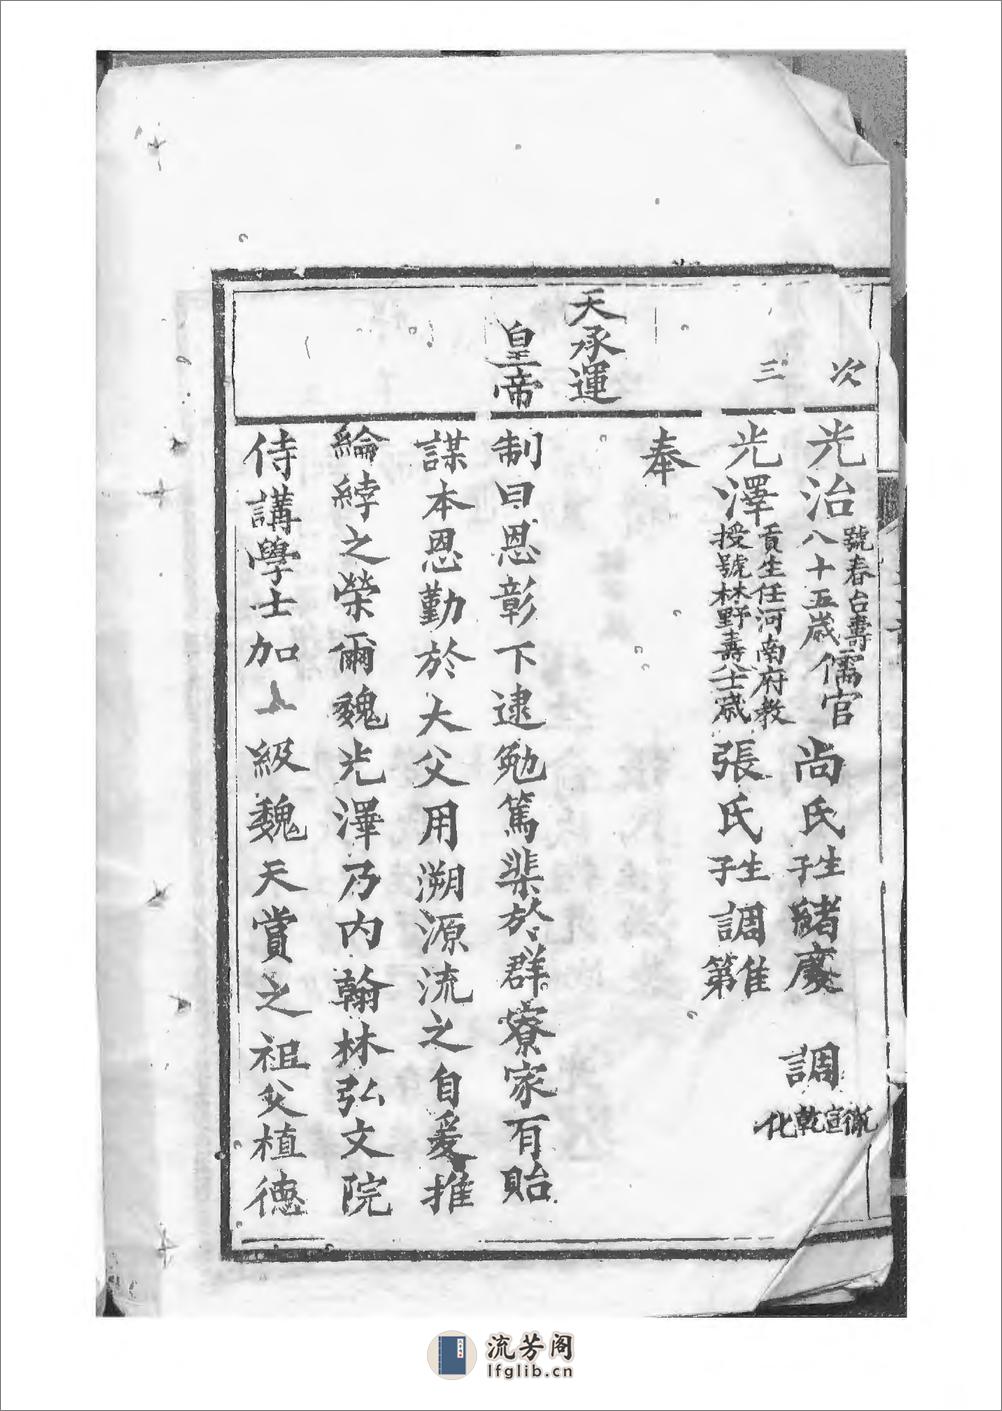 次 光治 號春台壽八十五歲 儒官 尚氏 生子 緒 慶 調
三 光澤 貢生任河南府教授號林野壽八十一歲 張氏 生子 調 第 維
徽 宣 乾 化
奉
天承運
皇帝制曰恩彰下逮勉篤棐於群寮家有貽
謀本恩勤於大父用溯源流之自爰推
綸綍之榮爾魏光澤乃內翰林弘文院
侍講學士加一級魏天賞之祖父植德
流芳阁
lfglib.cn